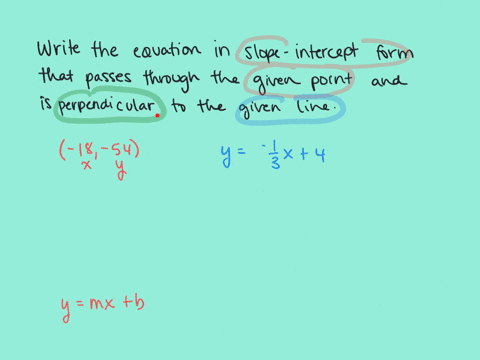 Write the equation in slope-intercept form
that passes through the given point and
is perpendicular to the given line.
(-18, -54)
x y
y = -1/3 x + 4
y = mx + b